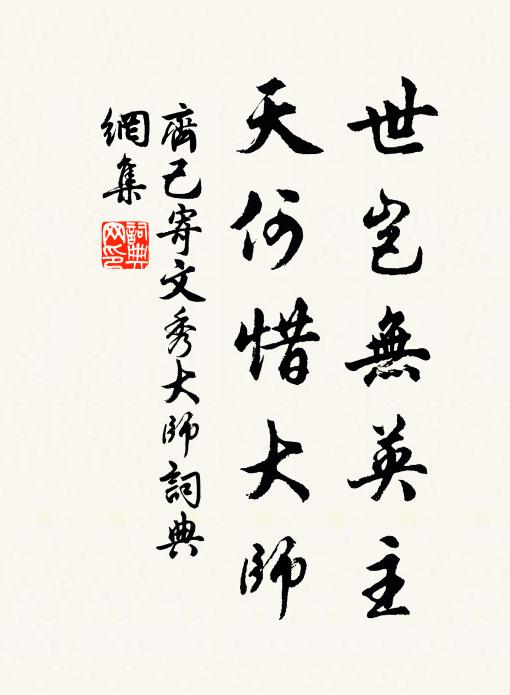 世豈無英主
天何惜大師
齊己寄文秀大師詞典
網集
詞典
网印